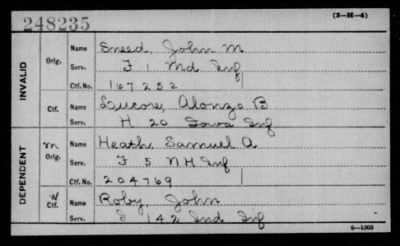 248235
(3-H-4)
INVALID
Orig.
Name Sneed, John M
Serv. F 1 Md Inf
Ctf. No. 167252
Ctf.
Name Lucore, Alonzo B
Serv. H 20 Iowa Inf
DEPENDENT
m Orig.
Name Heath, Samuel A.
Serv. F 5 NH Inf
Ctf. No. 204769
W Ctf.
Name Roby, John
Serv. 142 Ind Inf